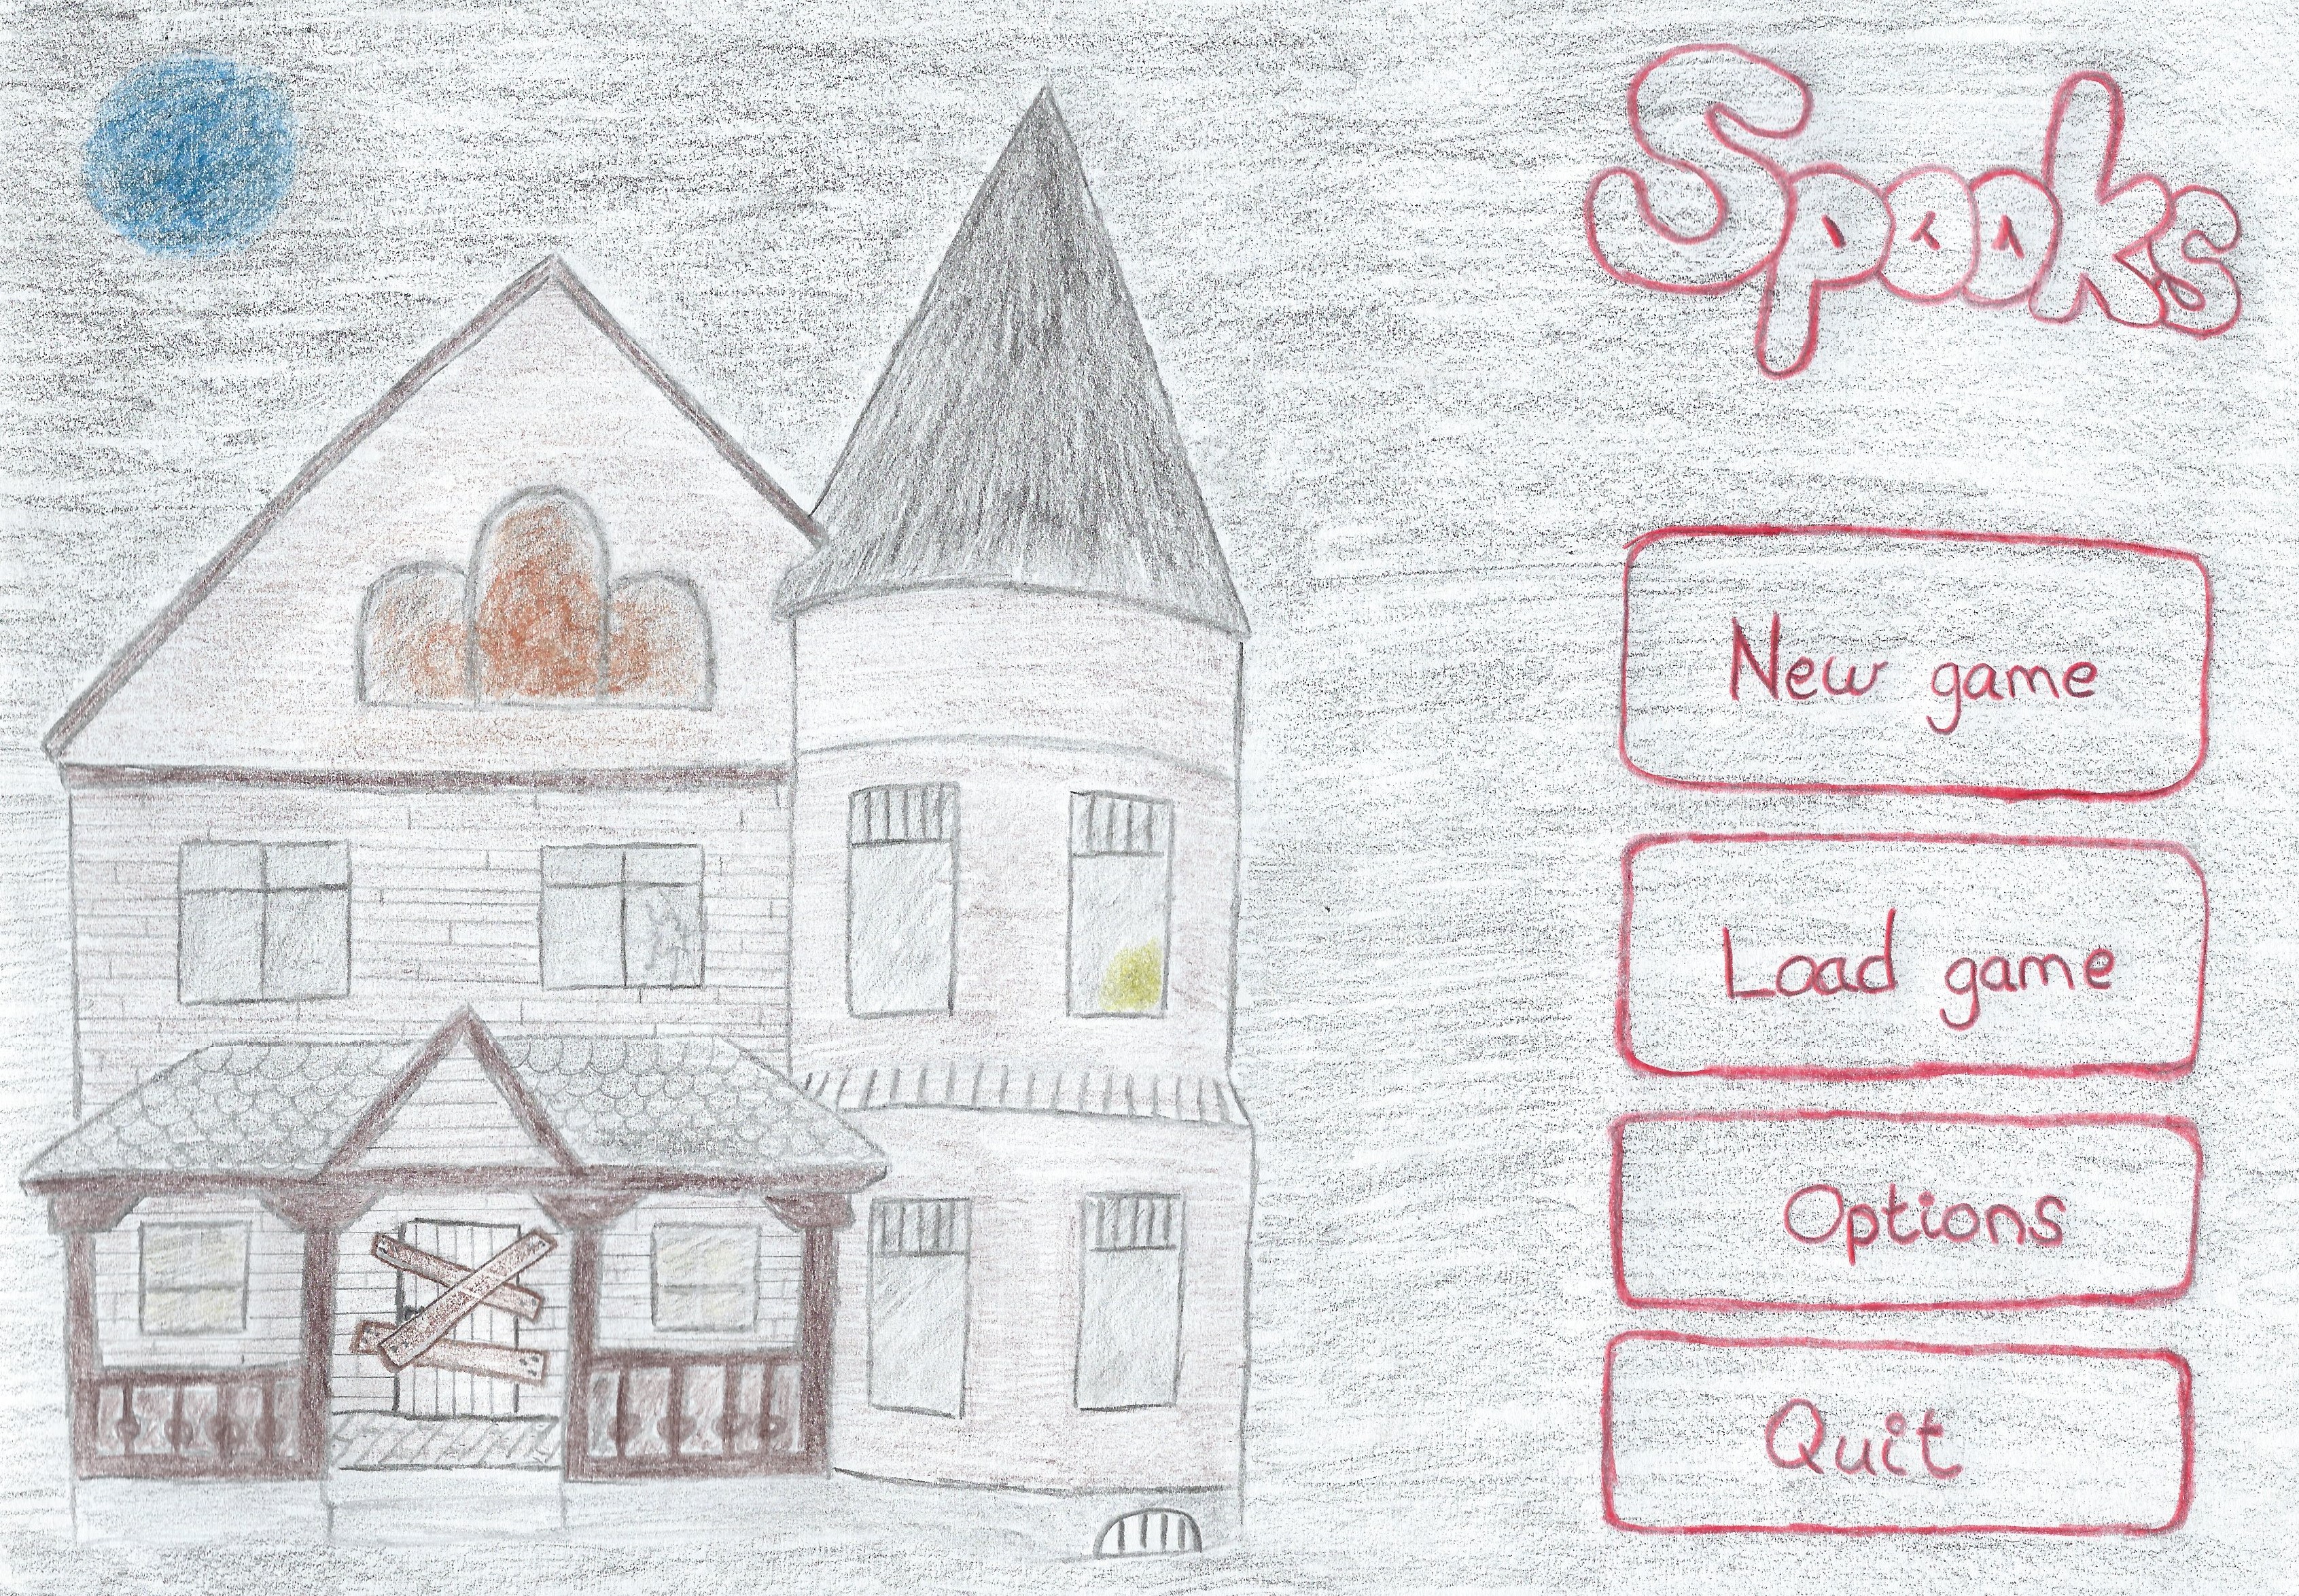 Spooks
New game
Load game
Options
Quit